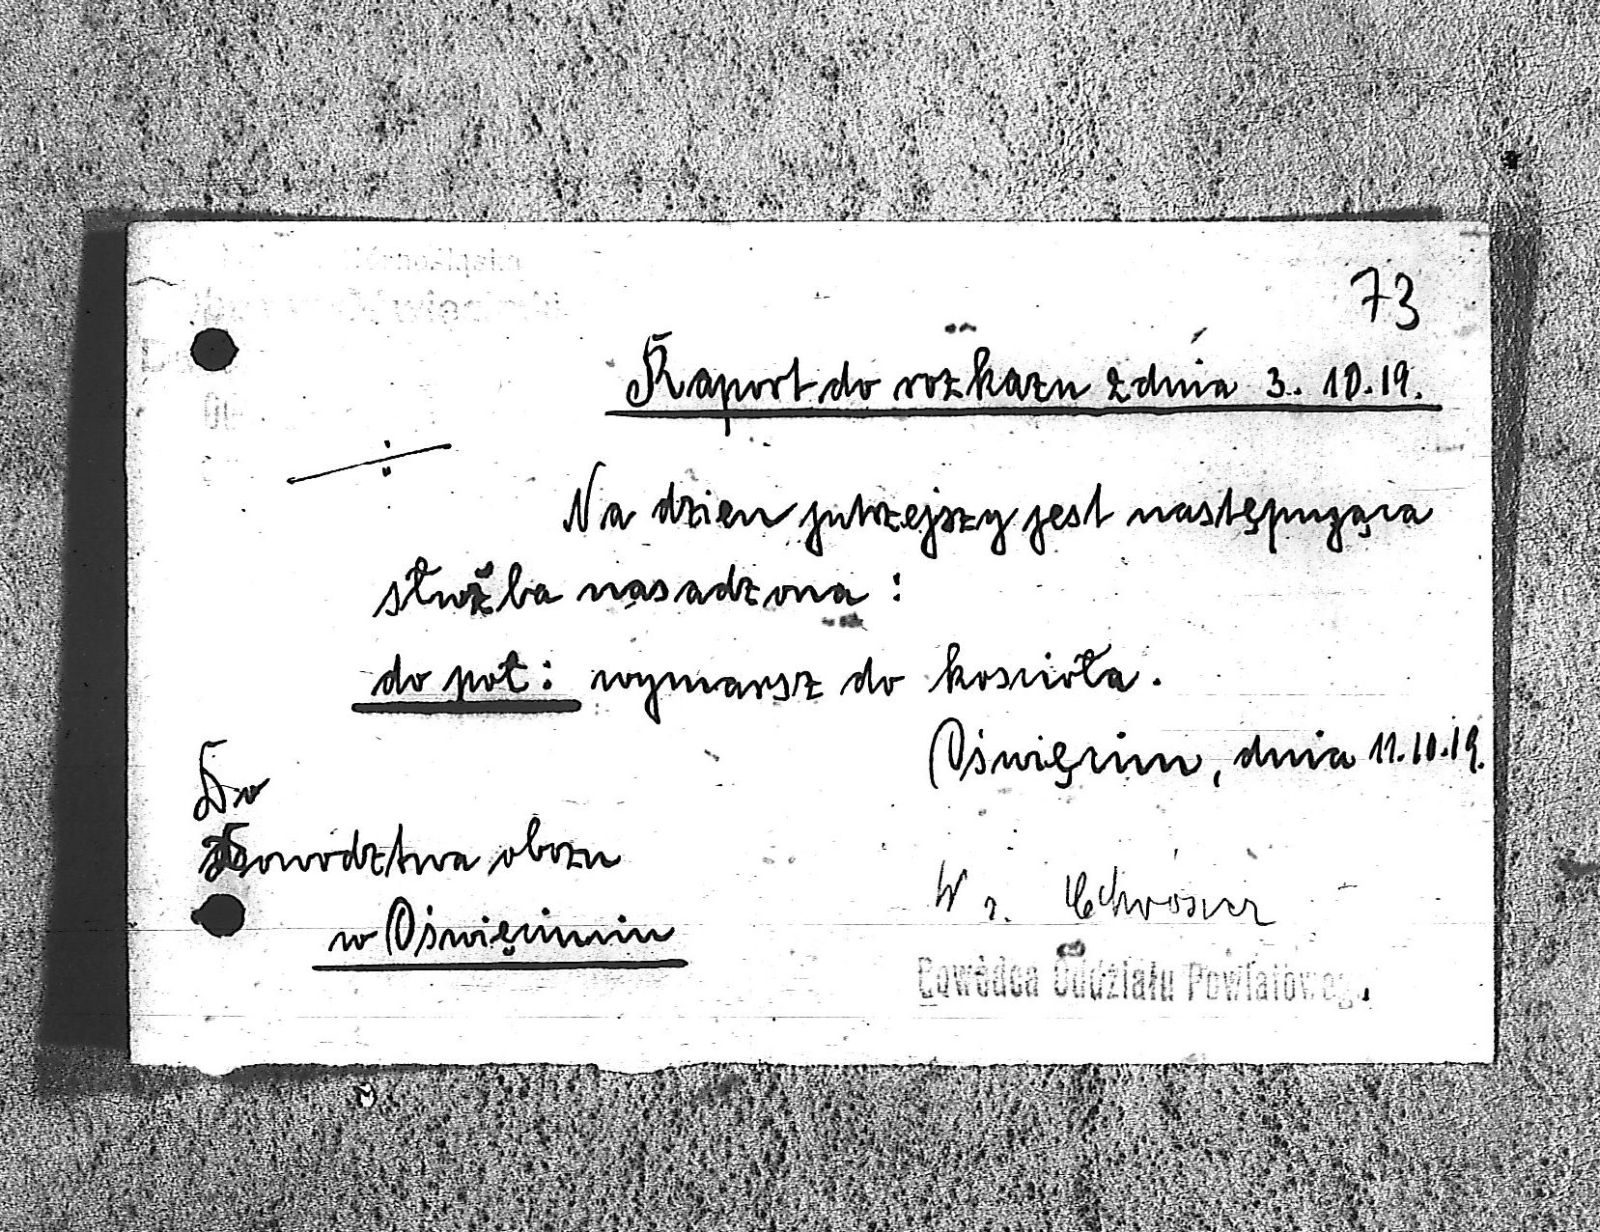 73
Raport do rozkazu z dnia 3. 10. 19.
Na dzien jutrzejszy jest następująca
służba nasadzona :
do poł : wymarsz do koscioła .
Oświęcim , dnia 11. 10. 19.
Do
Dowodztwa obozu
w Oświęcimiu
W z.
Dowódca Oddziału Powiatowego